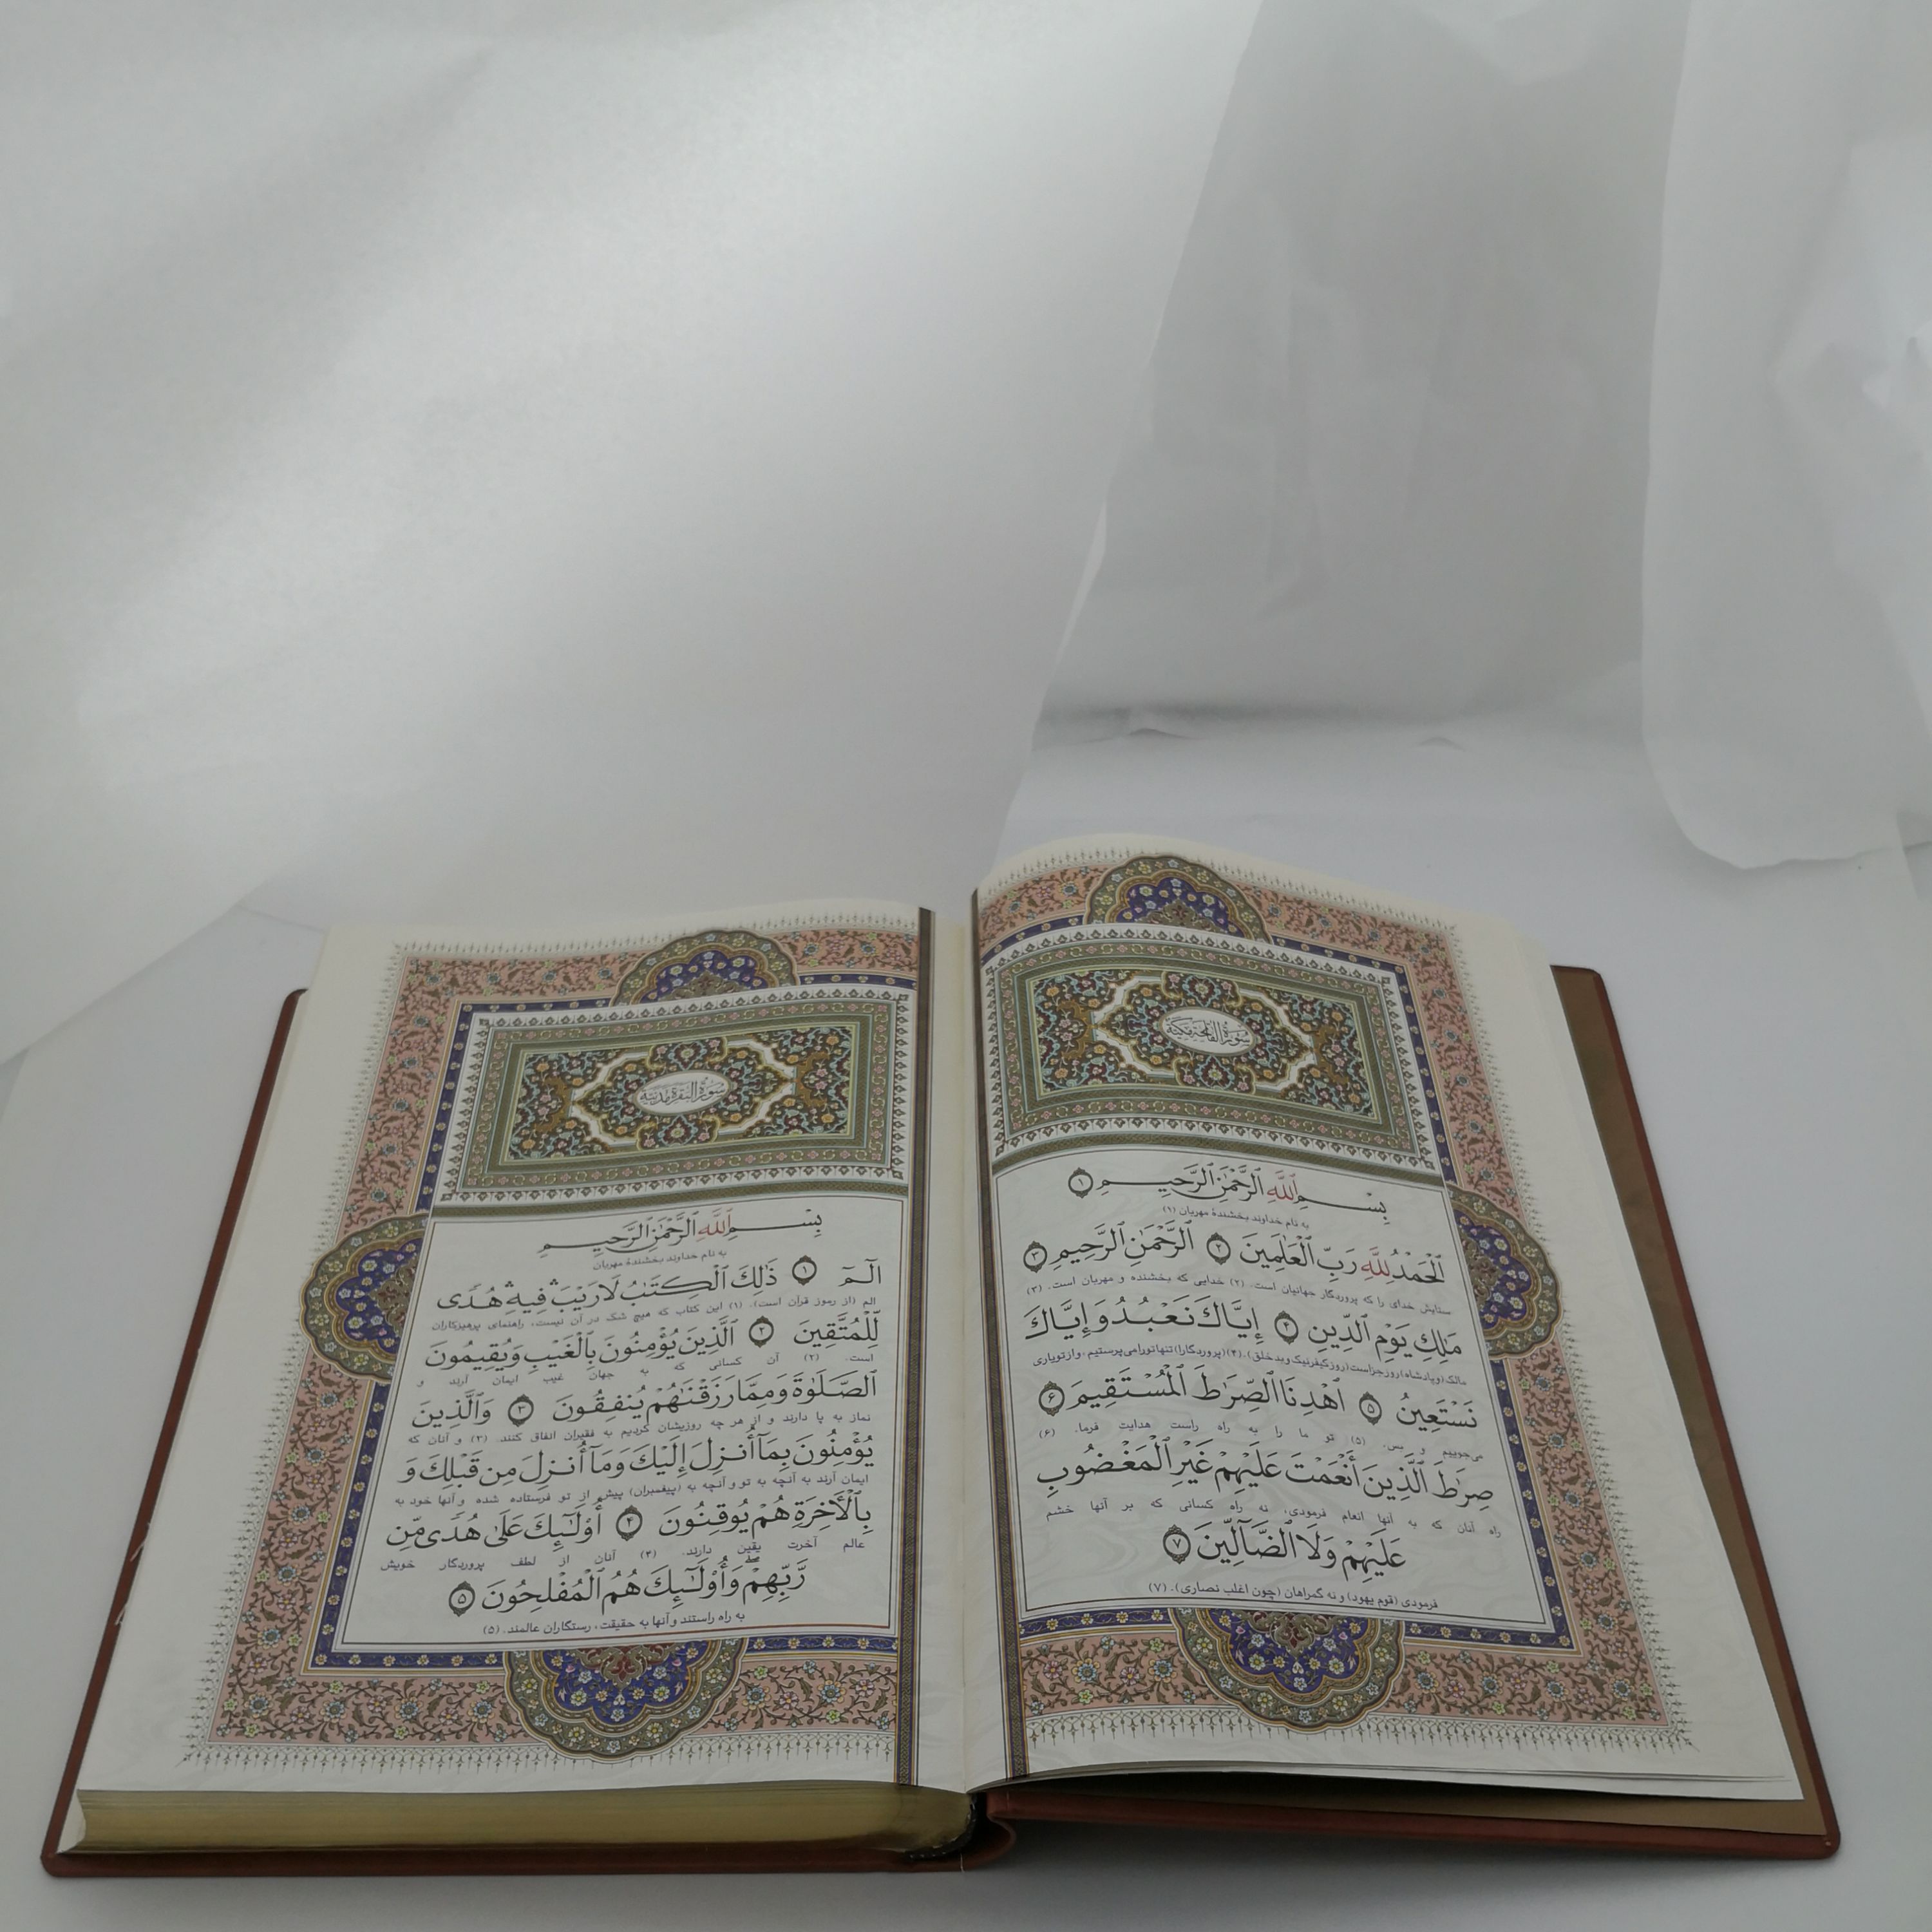 سورة الفاتحة مکیة
بِسْمِ ٱللَّهِ ٱلرَّحْمَٰنِ ٱلرَّحِيمِ ۝١
به نام خداوند بخشندهٔ مهربان (۱)
ٱلْحَمْدُ لِلَّهِ رَبِّ ٱلْعَالَمِينَ ۝٢ ٱلرَّحْمَٰنِ ٱلرَّحِيمِ ۝٣
ستایش خدای را که پروردگار جهانیان است. (۲) خدایی که بخشنده و مهربان است. (۳)
مَٰلِكِ يَوْمِ ٱلدِّينِ ۝۴ إِيَّاكَ نَعْبُدُ وَإِيَّاكَ
مالک (و پادشاه) روز جزاست (روز کیفر نیک و بد خلق). (۴) (پروردگارا) تنها تو را می‌پرستیم، و از تو یاری
نَسْتَعِينُ ۝۵ ٱهْدِنَا ٱلصِّرَٰطَ ٱلْمُسْتَقِيمَ ۝۶
می‌جوییم و بس. (۵) تو ما را به راه راست هدایت فرما. (۶)
صِرَٰطَ ٱلَّذِينَ أَنْعَمْتَ عَلَيْهِمْ غَيْرِ ٱلْمَغْضُوبِ
راه آنان که به آنها انعام فرمودی، نه راه کسانی که بر آنها خشم
عَلَيْهِمْ وَلَا ٱلضَّآلِّينَ ۝٧
فرمودی (قوم یهود) و نه گمراهان (چون اغلب نصاری). (۷)
سورة البقرة مدنیة
بِسْمِ ٱللَّهِ ٱلرَّحْمَٰنِ ٱلرَّحِيمِ
به نام خداوند بخشندهٔ مهربان
الٓمٓ ۝١ ذَٰلِكَ ٱلْكِتَٰبُ لَا رَيْبَ ۛ فِيهِ ۛ هُدًى
الم (از رموز قرآن است). (۱) این کتاب که هیچ شک در آن نیست، راهنمای پرهیزکاران
لِّلْمُتَّقِينَ ۝٢ ٱلَّذِينَ يُؤْمِنُونَ بِٱلْغَيْبِ وَيُقِيمُونَ
است. (۲) آن کسانی که به جهان غیب ایمان آرند و
ٱلصَّلَوٰةَ وَمِمَّا رَزَقْنَٰهُمْ يُنفِقُونَ ۝٣ وَٱلَّذِينَ
نماز به پا دارند و از هر چه روزیشان کردیم به فقیران انفاق کنند. (۳) و آنان که
يُؤْمِنُونَ بِمَآ أُنزِلَ إِلَيْكَ وَمَآ أُنزِلَ مِن قَبْلِكَ وَ
ایمان آرند به آنچه به تو و آنچه به (پیغمبران) پیش از تو فرستاده شده و آنها خود به
بِٱلْأَخِرَةِ هُمْ يُوقِنُونَ ۝۴ أُوْلَٰٓئِكَ عَلَىٰ هُدًى مِّن
عالم آخرت یقین دارند. (۴) آنان از لطف پروردگار خویش
رَّبِّهِمْ ۖ وَأُوْلَٰٓئِكَ هُمُ ٱلْمُفْلِحُونَ ۝۵
به راه راستند و آنها به حقیقت، رستگاران عالمند. (۵)